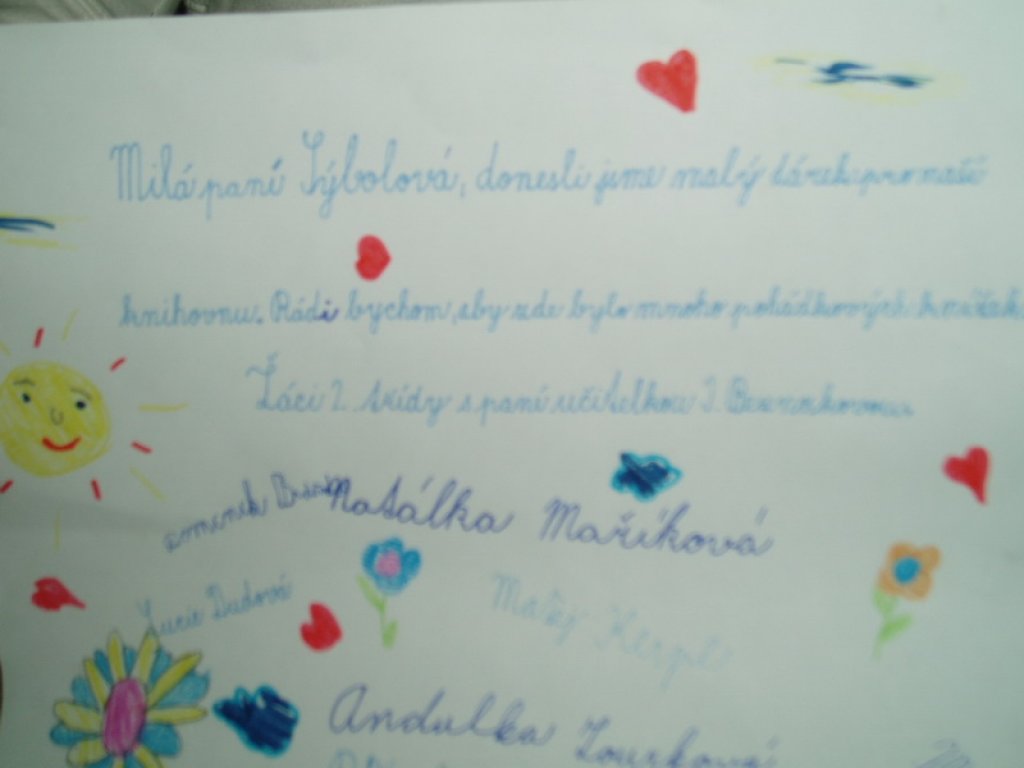 Milá paní Sýbolová, donesli jsme malý dárek pro naší
knihovnu. Rádi bychom, aby zde bylo mnoho pohádkových knížek.
Žáci 2. třídy s paní učitelkou J.
Natálka Maříková
Lucie Dudová
Matěj
Andulka